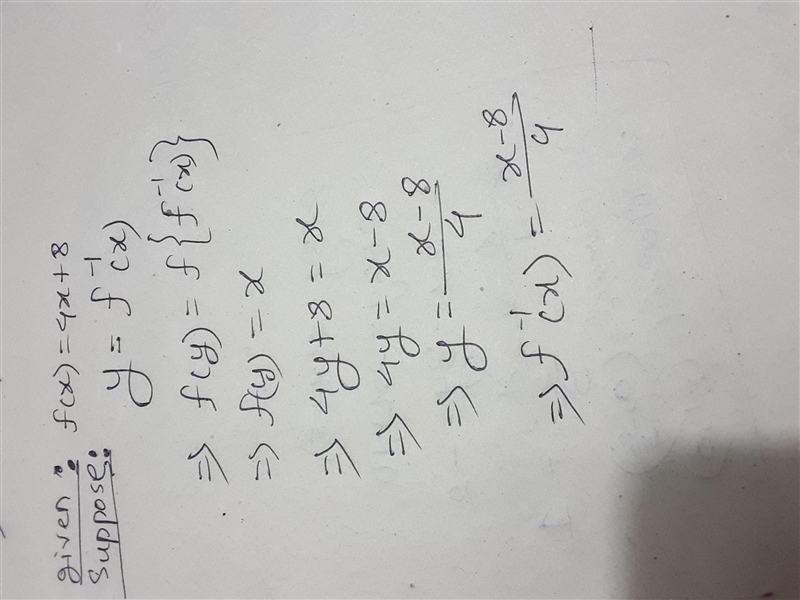 given: f(x) = 4x+8
Suppose: y = f⁻¹(x)
⇒ f(y) = f{f⁻¹(x)}
⇒ f(y) = x
⇒ 4y+8 = x
⇒ 4y = x-8
⇒ y = (x-8)/4
⇒ f⁻¹(x) = (x-8)/4